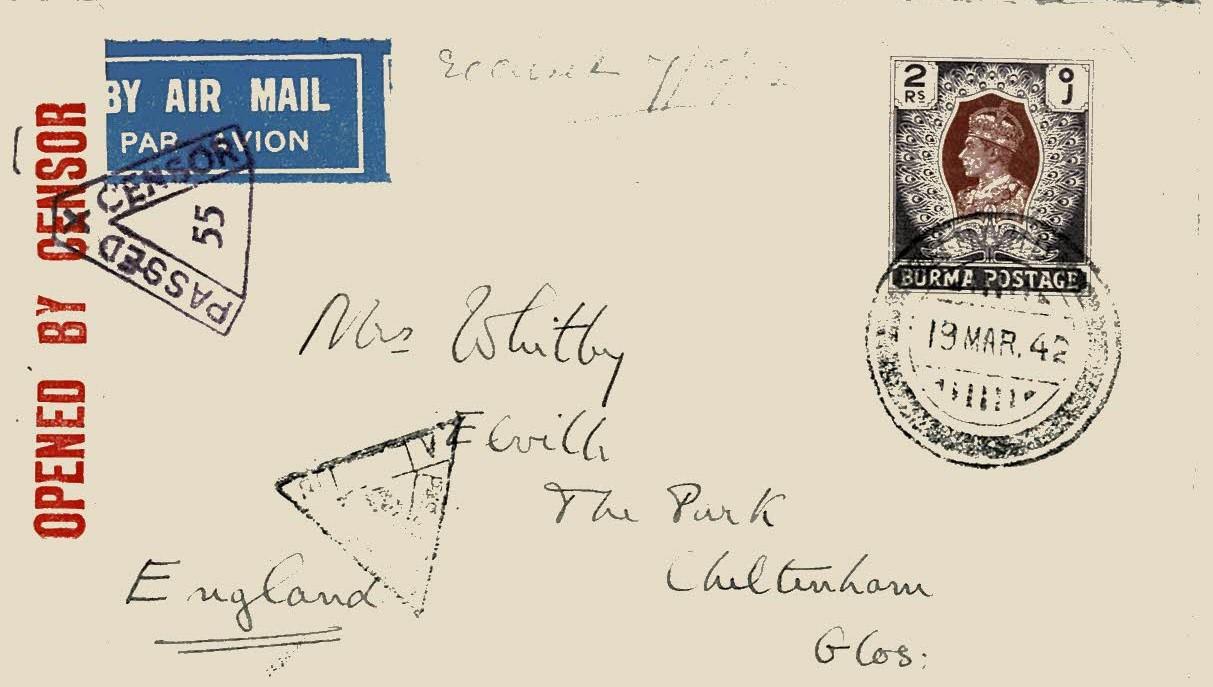 OPENED BY CENSOR
BY AIR MAIL
PAR AVION
PASSED X CENSOR
55
2
RS
၂
BURMA POSTAGE
19 MAR. 42
Mrs Whitby
The Park
Cheltenham
Glos:
England